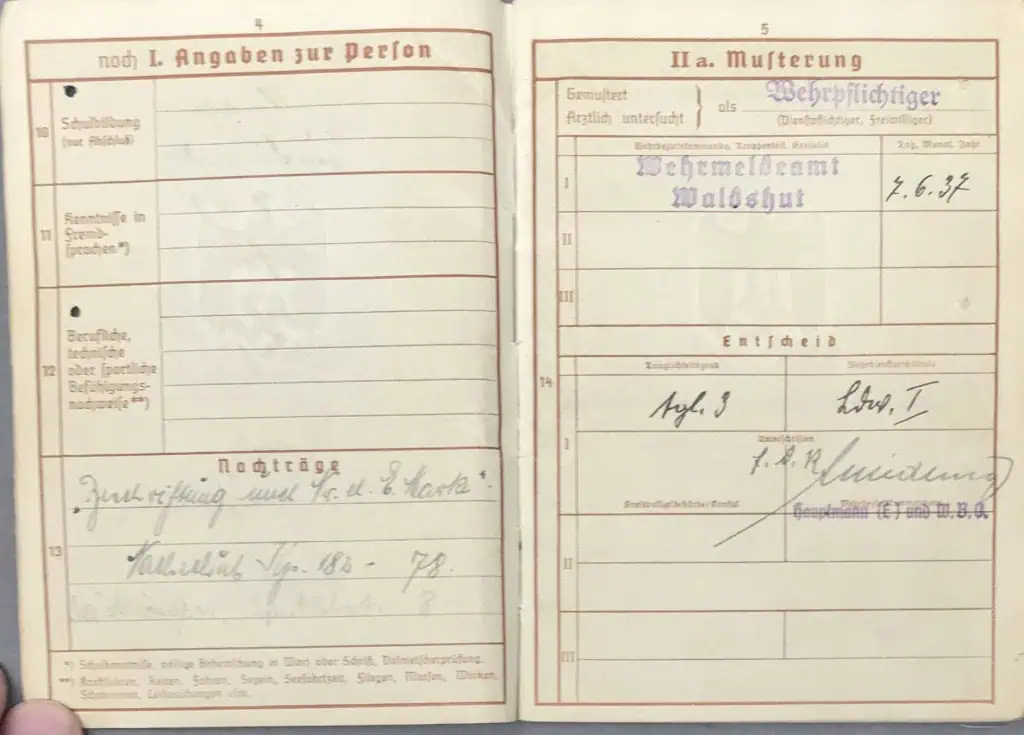 4
noch I. Angaben zur Person
10
Schulbildung
(nur Abschluß)
11
Kenntnisse in
Fremd-
sprachen*)
12
Berufliche,
technische
oder sportliche
Befähigungs-
nachweise**)
Nachträge
13
„Beschriftung und Nr. d. E. Mark“.
Nachschub Kp. 182 - 78.
8
*) Schulkenntnisse, völlige Beherrschung in Wort oder Schrift, Dolmetscherprüfung.
**) Kraftfahren, Reiten, Fahren, Segeln, Seefahrtzeit, Fliegen, Morsen, Winken,
Schwimmen, Leibesübungen usw.
5
II a. Musterung
Gemustert
Ärztlich untersucht } als Wehrpflichtiger
(Dienstpflichtiger, Freiwilliger)
Wehrbezirkskommando, Truppenteil, Konsulat
Tag, Monat, Jahr
I
Wehrmeldeamt
Waldshut
7.6.37
II
III
Entscheid
14
Tauglichkeitsgrad
Wehrdienstverhältnis
tgl. 3
Ldw. I
I
Unterschriften
Hauptmann (E) und W.B.O.
II
III